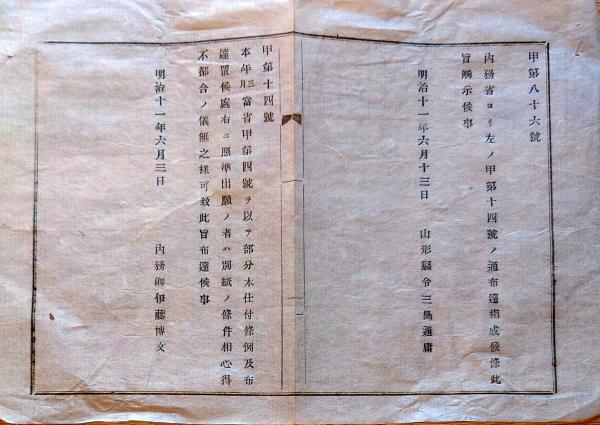 甲第八十六號
內務省ヨリ左ノ甲第十四號ノ通布達相成候條此
旨觸示候事
明治十一年六月十三日　山形縣令三島通庸
甲第十四號
本年三月當省甲第四號ヲ以テ部分木仕付條例及布
達置候處右ニ照準出願ノ者ハ別紙ノ條件相心得
不都合ノ儀無之樣可致此旨布達候事
明治十一年六月三日　內務卿伊藤博文